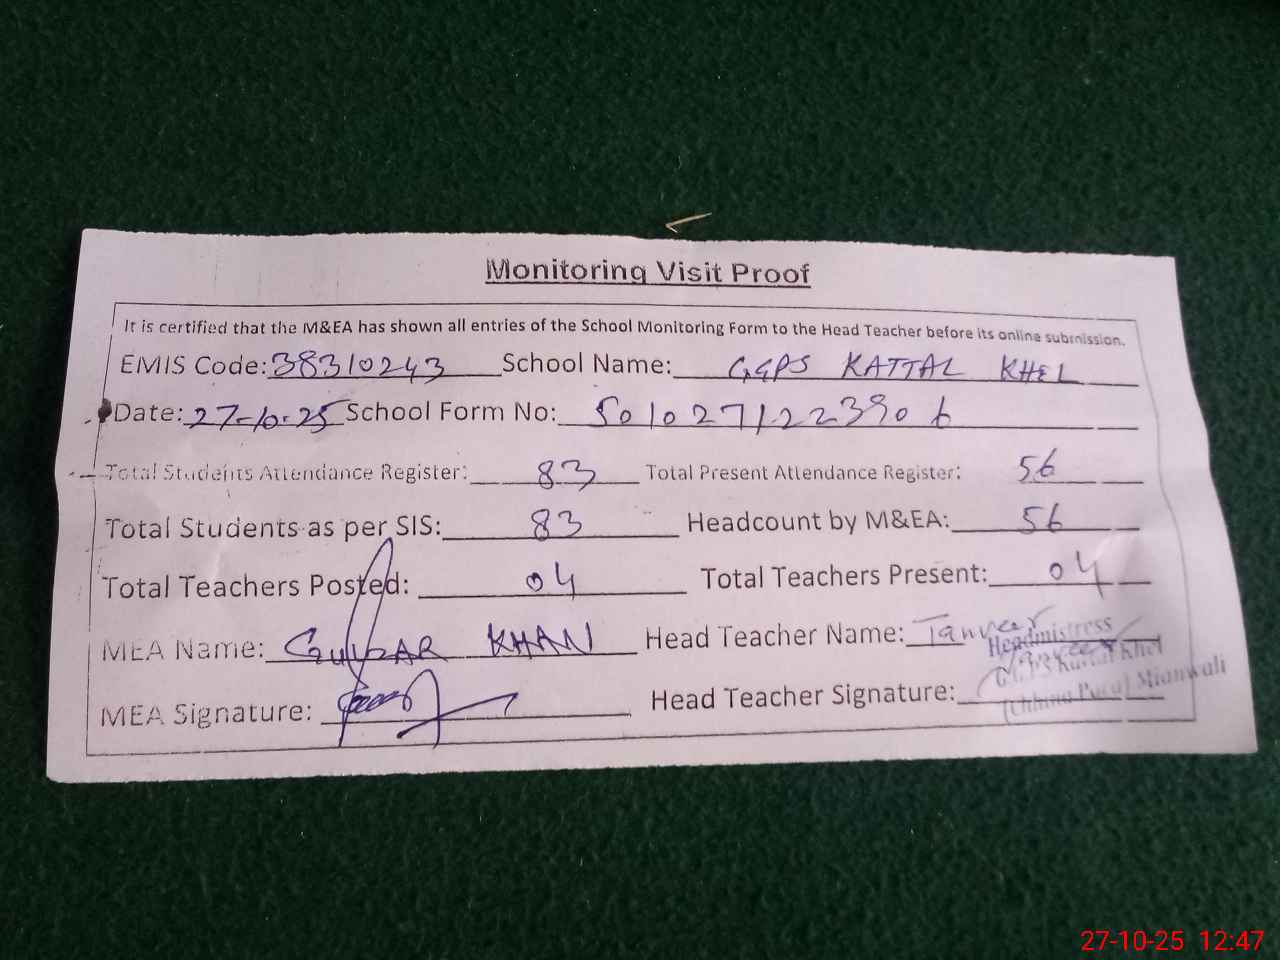 Monitoring Visit Proof
It is certified that the M&EA has shown all entries of the School Monitoring Form to the Head Teacher before its online submission.
EMIS Code: 38310243 School Name: GGPS KATTAL KHEL
Date: 27-10-25 School Form No: 501027122390 6
Total Students Attendance Register: 83 Total Present Attendance Register: 56
Total Students as per SIS: 83 Headcount by M&EA: 56
Total Teachers Posted: 04 Total Teachers Present: 04
MEA Name: GULZAR KHAN Head Teacher Name: Tanveer
Headmistress
MEA Signature: Head Teacher Signature:
Kattal Khel
Mianwali
27-10-25 12:47